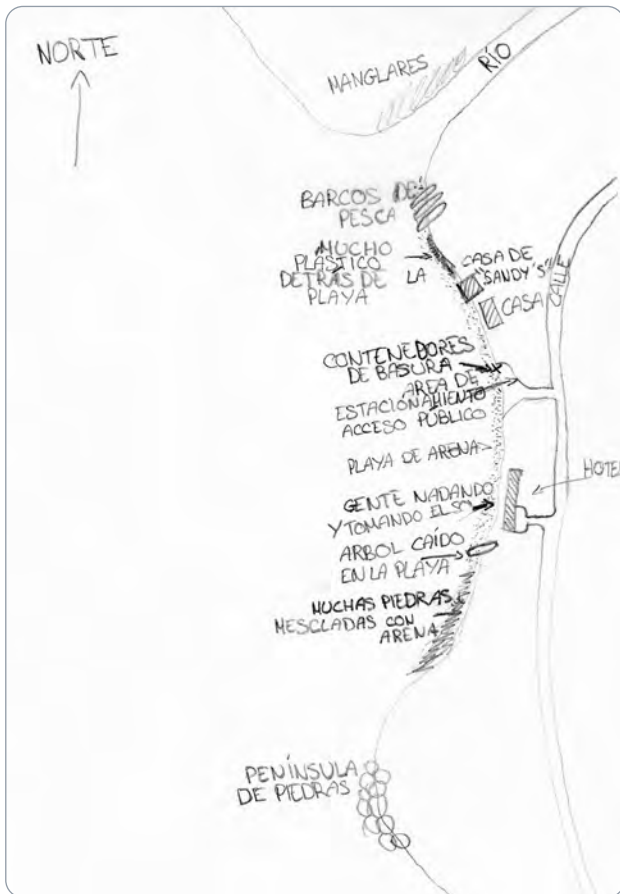 NORTE
MANGLARES
RÍO
BARCOS DE
PESCA
MUCHO
PLÁSTICO
DETRÁS DE LA
PLAYA
CASA DE
"SANDY'S"
CASA
CALLE
CONTENEDORES
DE BASURA
ÁREA DE
ESTACIONAMIENTO
ACCESO PÚBLICO
PLAYA DE ARENA
HOTEL
GENTE NADANDO
Y TOMANDO EL SOL
ARBOL CAÍDO
EN LA PLAYA
MUCHAS PIEDRAS
MESCLADAS CON
ARENA
PENÍNSULA
DE PIEDRAS